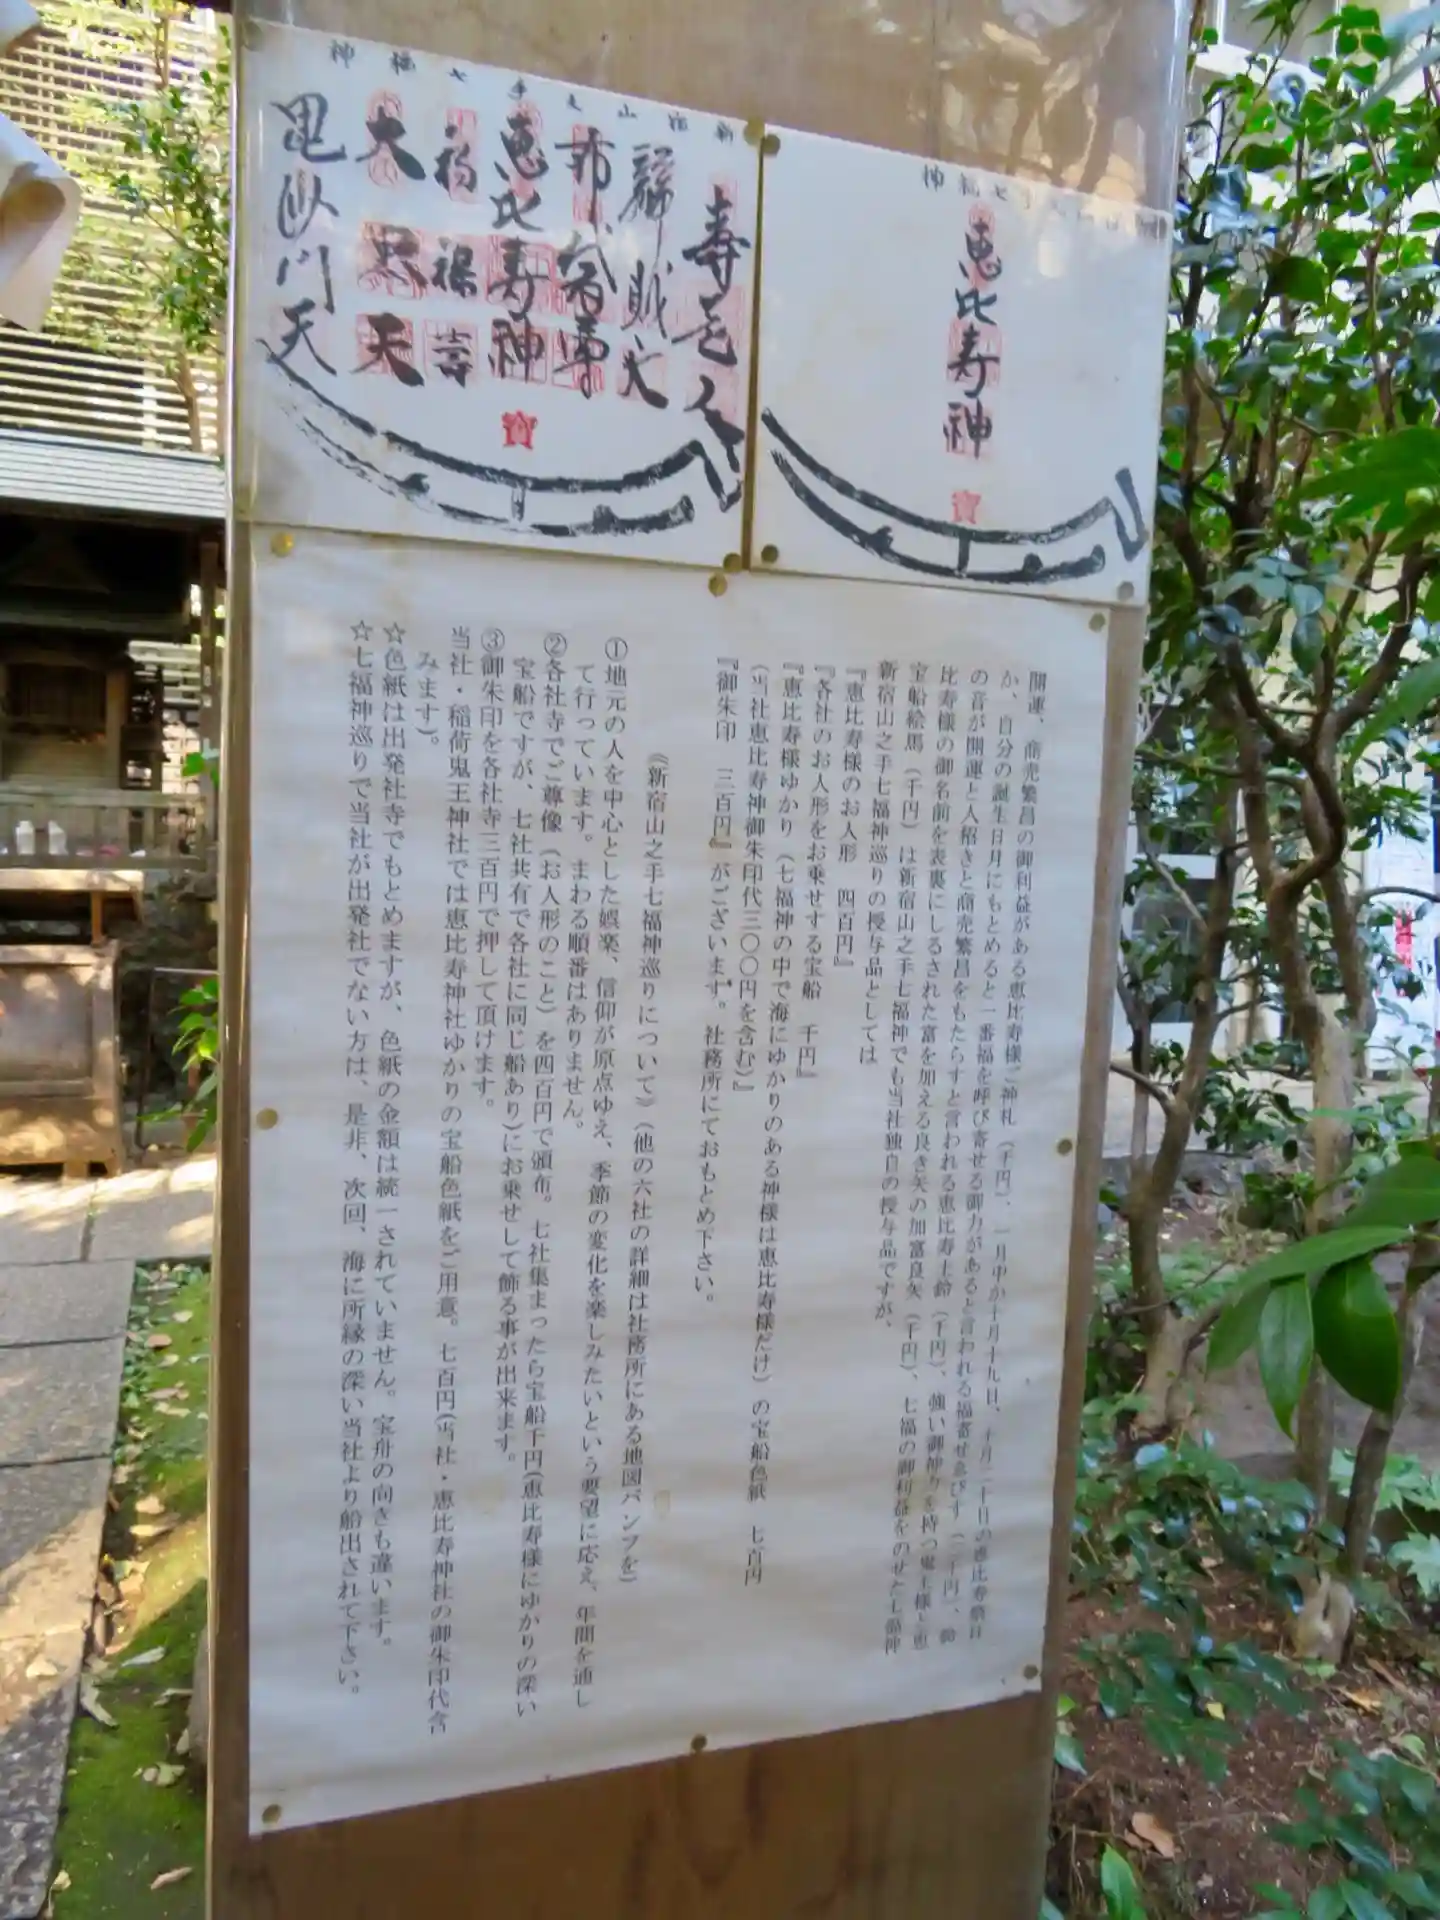 新宿山之手七福神
恵比寿神
寶
新宿山之手七福神
寿老人
辯財天
布袋尊
恵比寿神
福禄壽
大黒天
毘沙門天
寶
開運、商売繁昌の御利益がある恵比寿様ご神札(千円)、一月中か十月十九日、十月二十日の恵比寿祭日
か、自分の誕生日月にもとめると一番福を呼び寄せる御力があると言われる福寄せ
の音が開運と人招きと商売繁昌をもたらすと言われる恵比寿土鈴(千円)、強い御神力を持つ鬼王様と恵
比寿様の御名前を表裏にしるされた富を加える良き矢の加富良矢(千円)、七福の御利益をのせた七福神
宝船絵馬(千円)は新宿山之手七福神でも当社独自の授与品ですが、
新宿山之手七福神巡りの授与品としては
『恵比寿様のお人形 四百円』
『各社のお人形をお乗せする宝船 千円』
『恵比寿様ゆかり(七福神の中で海にゆかりのある神様は恵比寿様だけ)の宝船色紙 七百円
(当社恵比寿神御朱印代三〇〇円を含む)』
『御朱印 三百円』がございます。社務所にておもとめ下さい。
《新宿山之手七福神巡りについて》(他の六社の詳細は社務所にある地図パンフを)
①地元の人を中心とした娯楽、信仰が原点ゆえ、季節の変化を楽しみたいという要望に応え、年間を通し
て行っています。まわる順番はありません。
②各社寺でご尊像(お人形のこと)を四百円で頒布。七社集まったら宝船千円(恵比寿様にゆかりの深い
宝船ですが、七社共有で各社に同じ船あり)にお乗せして飾る事が出来ます。
③御朱印を各社寺三百円で押して頂けます。
当社・稲荷鬼王神社では恵比寿神社ゆかりの宝船色紙をご用意。七百円(当社・恵比寿神社の御朱印代含
みます)。
☆色紙は出発社寺でもとめますが、色紙の金額は統一されていません。宝舟の向きも違います。
☆七福神巡りで当社が出発社でない方は、是非、次回、海に所縁の深い当社より船出されて下さい。